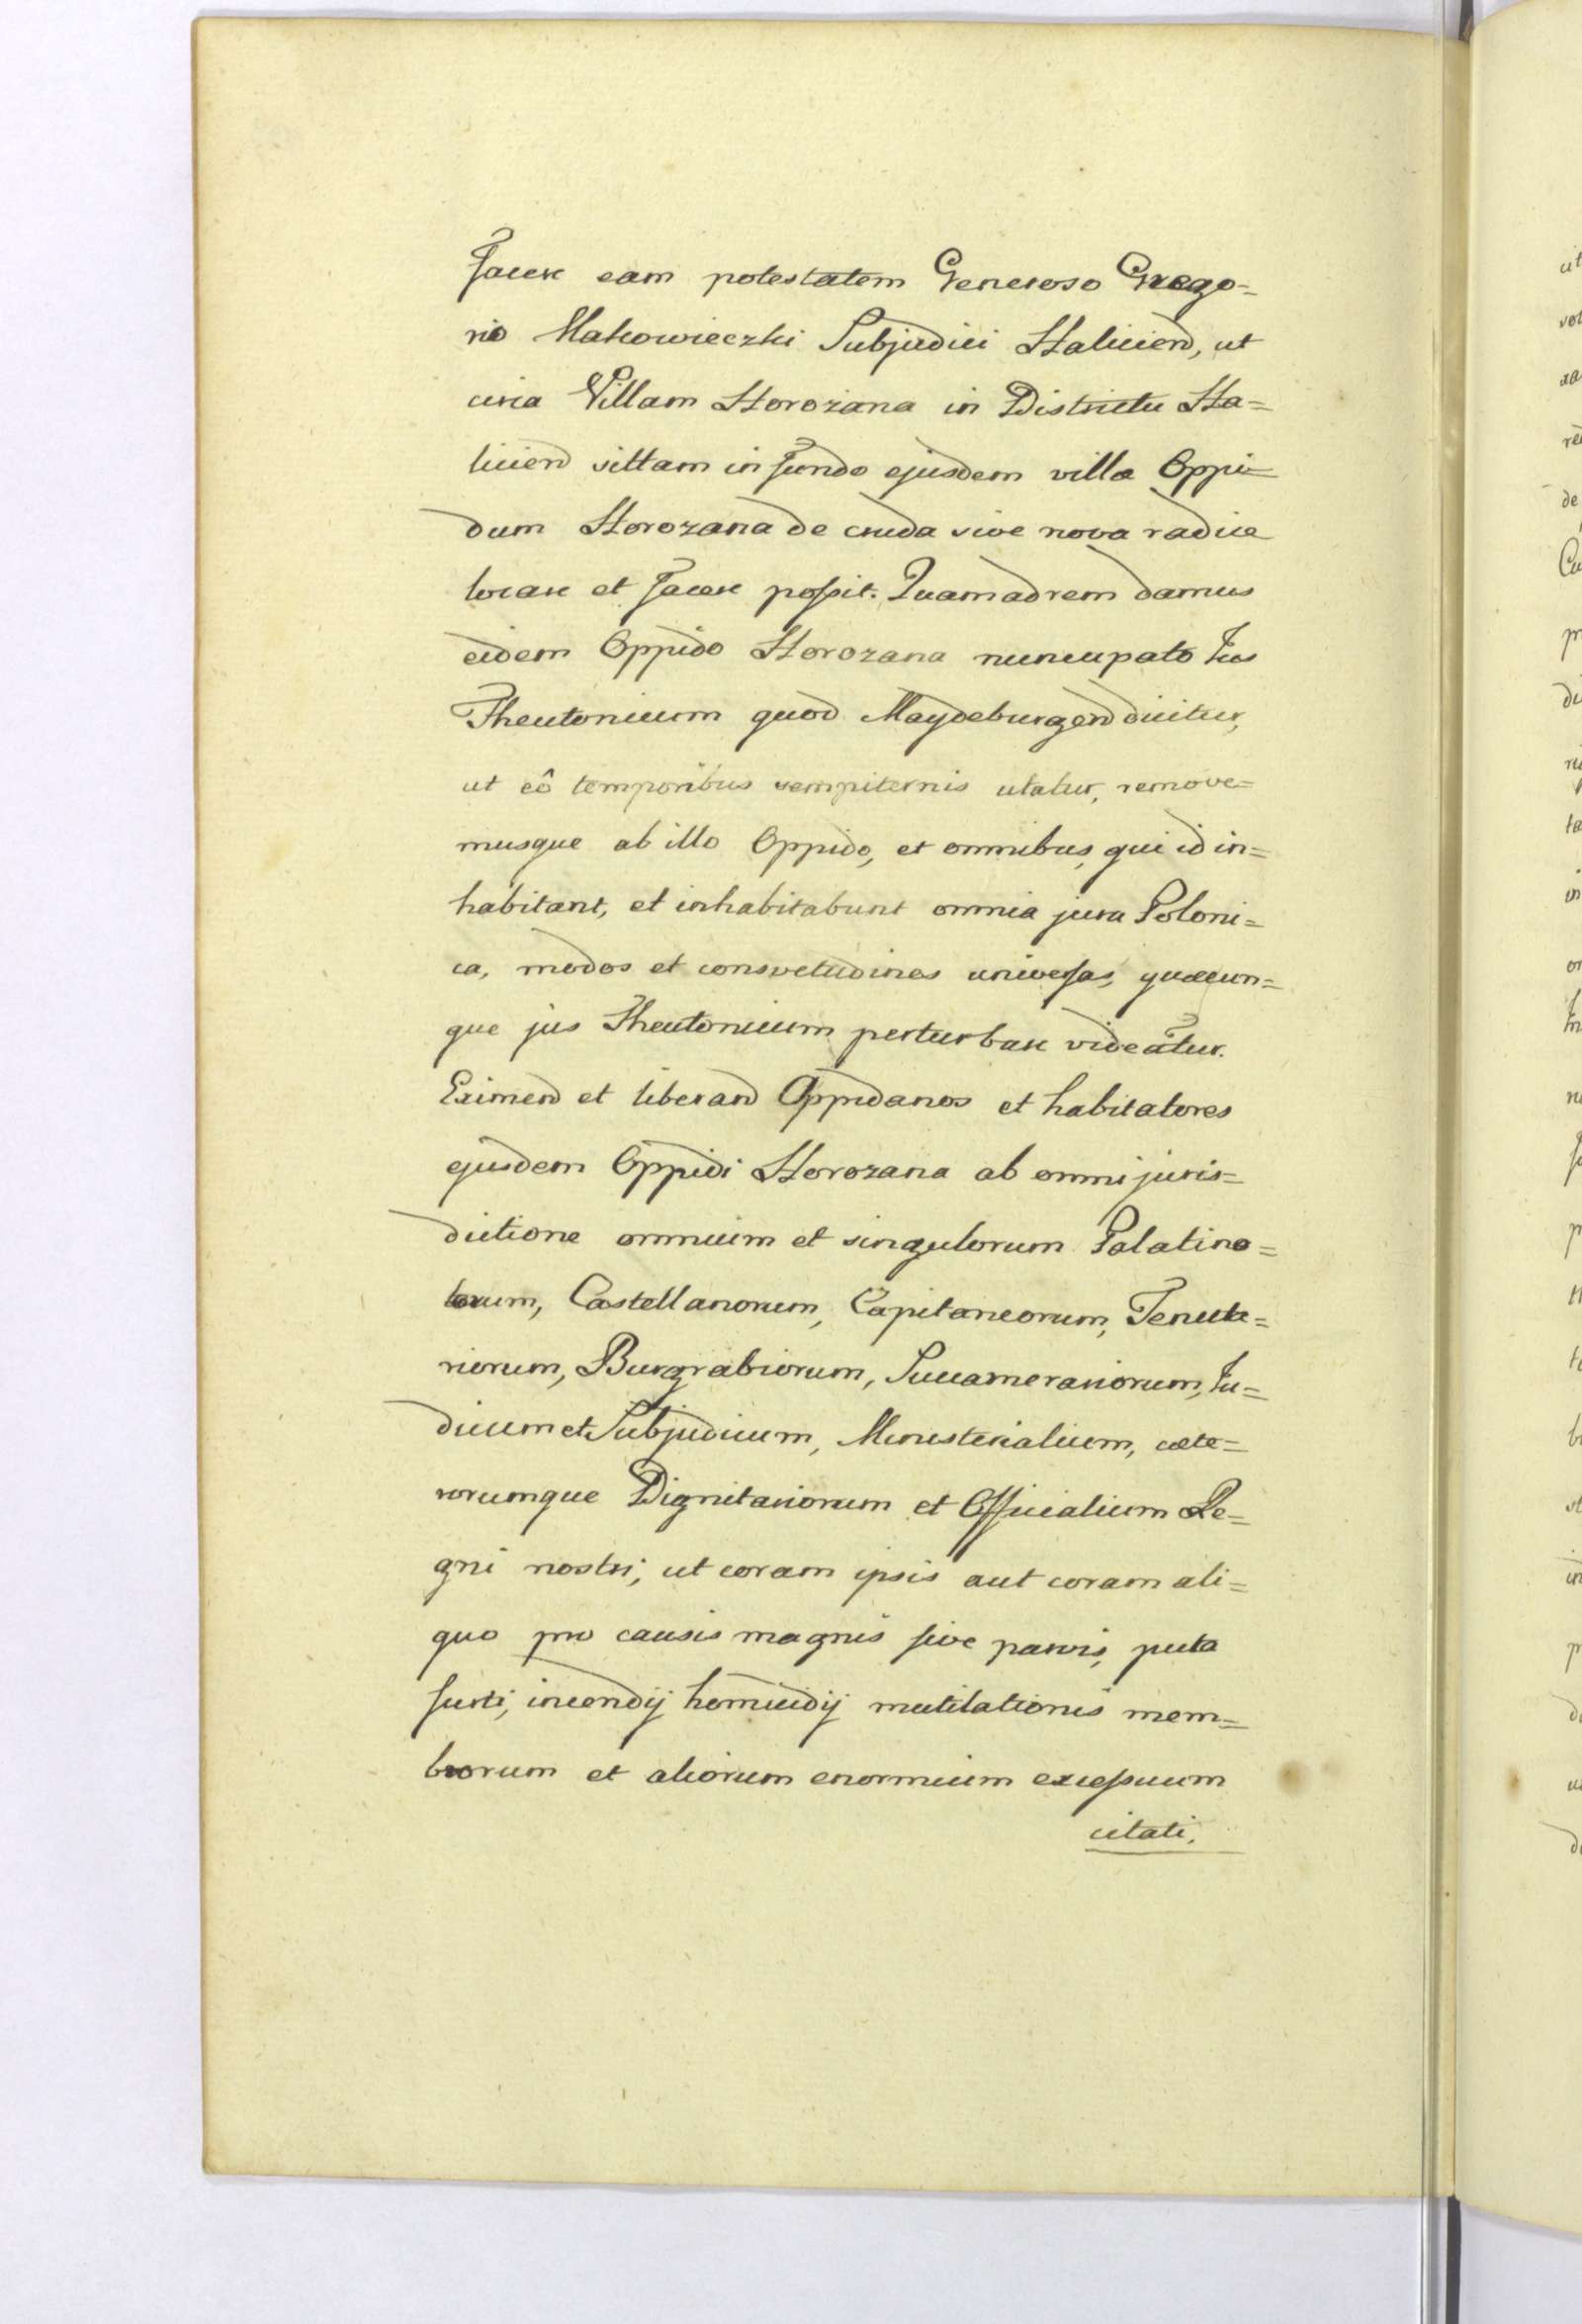 facere eam potestatem Generoso Grego=
rio Makowieczki Subjudici Halicien, ut
circa Villam Horozana in Districtu Ha=
licien sittam in fundo ejusdem villæ Oppi=
dum Horozana de cruda sive nova radice
locare et facere possit. Quamadrem damus
eidem Oppido Horozana nuncupato Jus
Theutonicum quod Maydeburgen dicitur,
ut eô temporibus sempiternis utatur, remove=
musque ab illo Oppido, et omnibus, qui id in=
habitant, et inhabitabunt omnia jura Poloni=
ca, modos et consvetudines universas, quæcun=
que jus Theutonicum perturbare videatur.
Eximend et liberand Oppidanos et habitatores
ejusdem Oppidi Horozana ab omni juris=
dictione omnium et singulorum Palatino=
rum, Castellanorum, Capitaneorum, Tenuta=
riorum, Burgrabiorum, Succamerariorum, Ju=
dicum et Subjudicum, Ministerialium, cæte=
rorumque Dignitariorum et Officialium Re=
gni nostri, ut coram ipsis aut coram ali=
quo pro causis magnis sive parvis, puta
furti, incendij homicidij mutilationis mem=
brorum et aliorum enormium excessuum
citati,